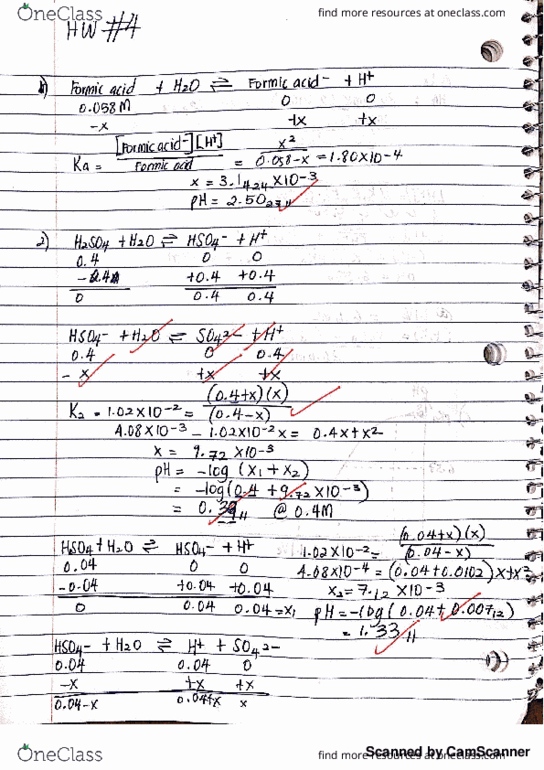 OneClass
find more resources at oneclass.com
HW #4
1) Formic acid + H2O ⇌ Formic acid⁻ + H⁺
0.058M 0 0
-x +x +x
Ka = [Formic acid⁻][H⁺] / Formic acid = x² / 0.058-x = 1.80×10-4
x = 3.1424 ×10-3
pH = 2.5027
2) H2SO4 + H2O ⇌ HSO4⁻ + H⁺
0.4 0 0
+0.4 +0.4
0 0.4 0.4
HSO4⁻ + H2O ⇌ SO4²⁻ + H⁺
0.4 0 0.4
-x +x +x
K2 = 1.02×10-2 = (0.4+x)(x) / (0.4-x)
4.08×10-3 - 1.02×10-2x = 0.4x+x²
x = 9.72 ×10-3
pH = -log (x1 + x2)
= -log(0.4 + 9.72 ×10-3)
@ 0.4M
HSO4 + H2O ⇌ HSO4⁻ + H⁺
0.04 0 0
-0.04 +0.04 +0.04
0 0.04 0.04 = x1
1.02×10-2 = (0.04+x)(x) / (0.04-x)
4.08×10-4 = (0.04+0.0102)x+x²
x2 = 7.12 ×10-3
pH = -log(0.04+0.00712)
= 1.33
HSO4⁻ + H2O ⇌ H⁺ + SO4²⁻
0.04 0.04 0
-x +x +x
0.04-x 0.04+x x
Scanned by CamScanner
OneClass
find more resources at oneclass.com